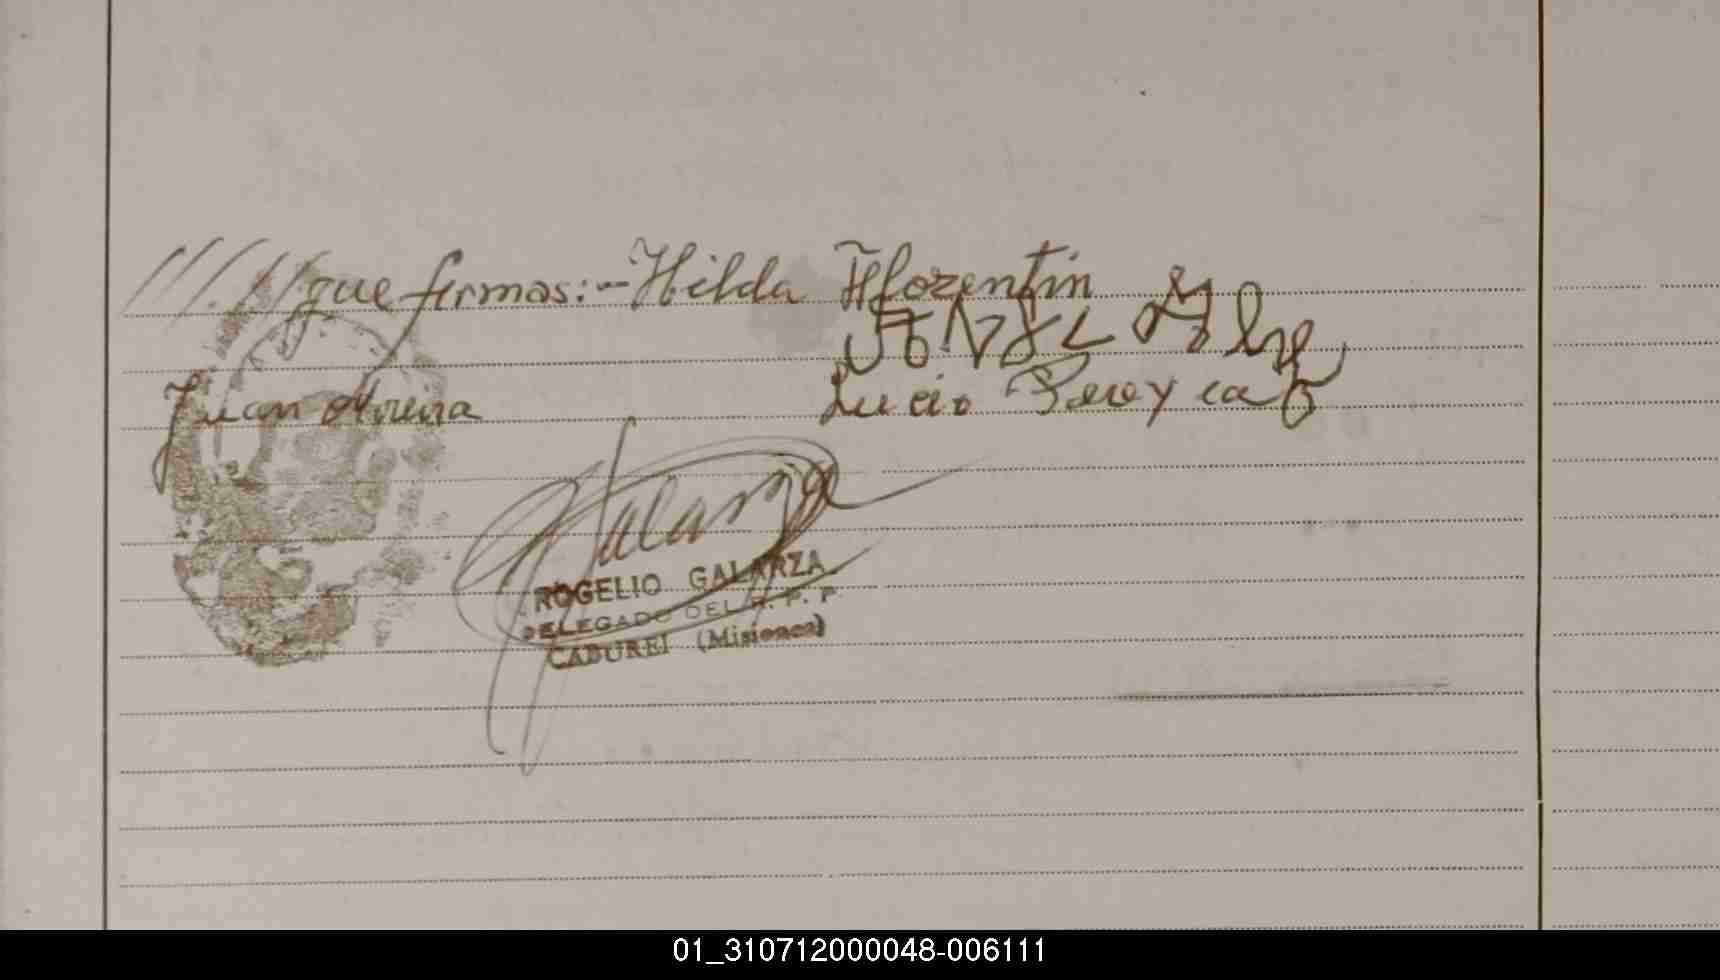 /////que firmas:- Hilda Florentin
Juan
Lucio Pereyra
Galarza
ROGELIO GALARZA
DELEGADO DEL R. P. P.
CABUREI (Misiones)
01_310712000048-006111